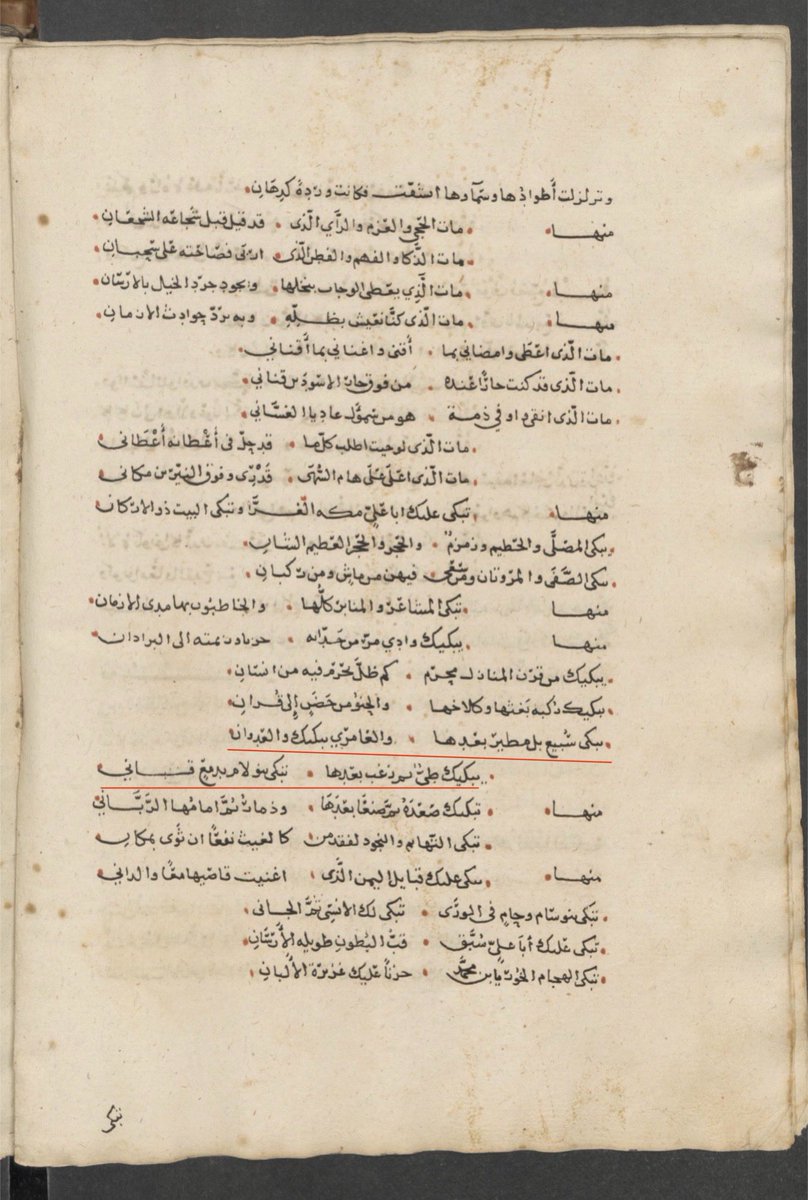 وتزلزلت أطوادها وسماوها انشقت فكانت وردة كدهان
منها مات الحجى والعزم والرأي الذى قد قيل قبل شجاعه الشجعان
مات الذكا والفهم والفطن الذى اربى فصاحته على سحبان
منها مات الذي يعطى الوجاب بنحلها ويجود جرد الخيل بالارسان
منها مات الذى كنا نعيش بظله وبه نرد حوادث الازمان
مات الذى اعطى وامضانى بما أقنى واغنانى بما أقنانى
مات الذى قد كنت جارا عنده من فوق جار الاسود بن قنانى
مات الذى انقى واوفى ذمة هو من سموأل عاديا الغسانى
مات الذى لوحيت اطلب كلما قد جل فى أعطانه أعطانى
مات الذى اعلى على هام السهى قدرى وفوق النيرين مكانى
منها تبكى عليك ابا على مكه الغرا وتبكى البيت ذو الاركان
يبكى المصلى والحطيم وزمزم والحجر والحجر العظيم الشان
تبكى الصفى والمروتان ومن سعى فيهن من ماش ومن ركبان
منها تبكى المشاعر والمنابر كلها والخاطبون بها مدى الازمان
منها يبكيك وادي مره من حدانه حزنا ونمته الى البرادان
يبكيك من قرن المنازل محرم كم ظل يحرم فيه من انسان
يبكيك ركبه بعثها وكلاخها والجنو من حضن إلى قران
تبكى سبيع بل مطير بعدها والعامري يبكيك والعدوانى
يبكيك طى ثم زغب بعدها تبكى بنو لام بدمع قانى
منها تبكيك صعدة ثم صنعا بعدها وذمار ثم امامها الربانى
تبكى التهايم والنجود لفقد من كالغيث نفعا ان ثوى بمكان
منها يبكى عليك قبايل اليمن الذى اغنيت قاصيها معا والدانى
تبكى بنو سام وحام فى الورى تبكى لك الانسى ثم الجانى
تبكى عليك أبا على سبق قب البطون طويله الأرسان
تبكى الهجام الخور يا بن محمد حزنا عليك غزيرة الألبان
تبكى